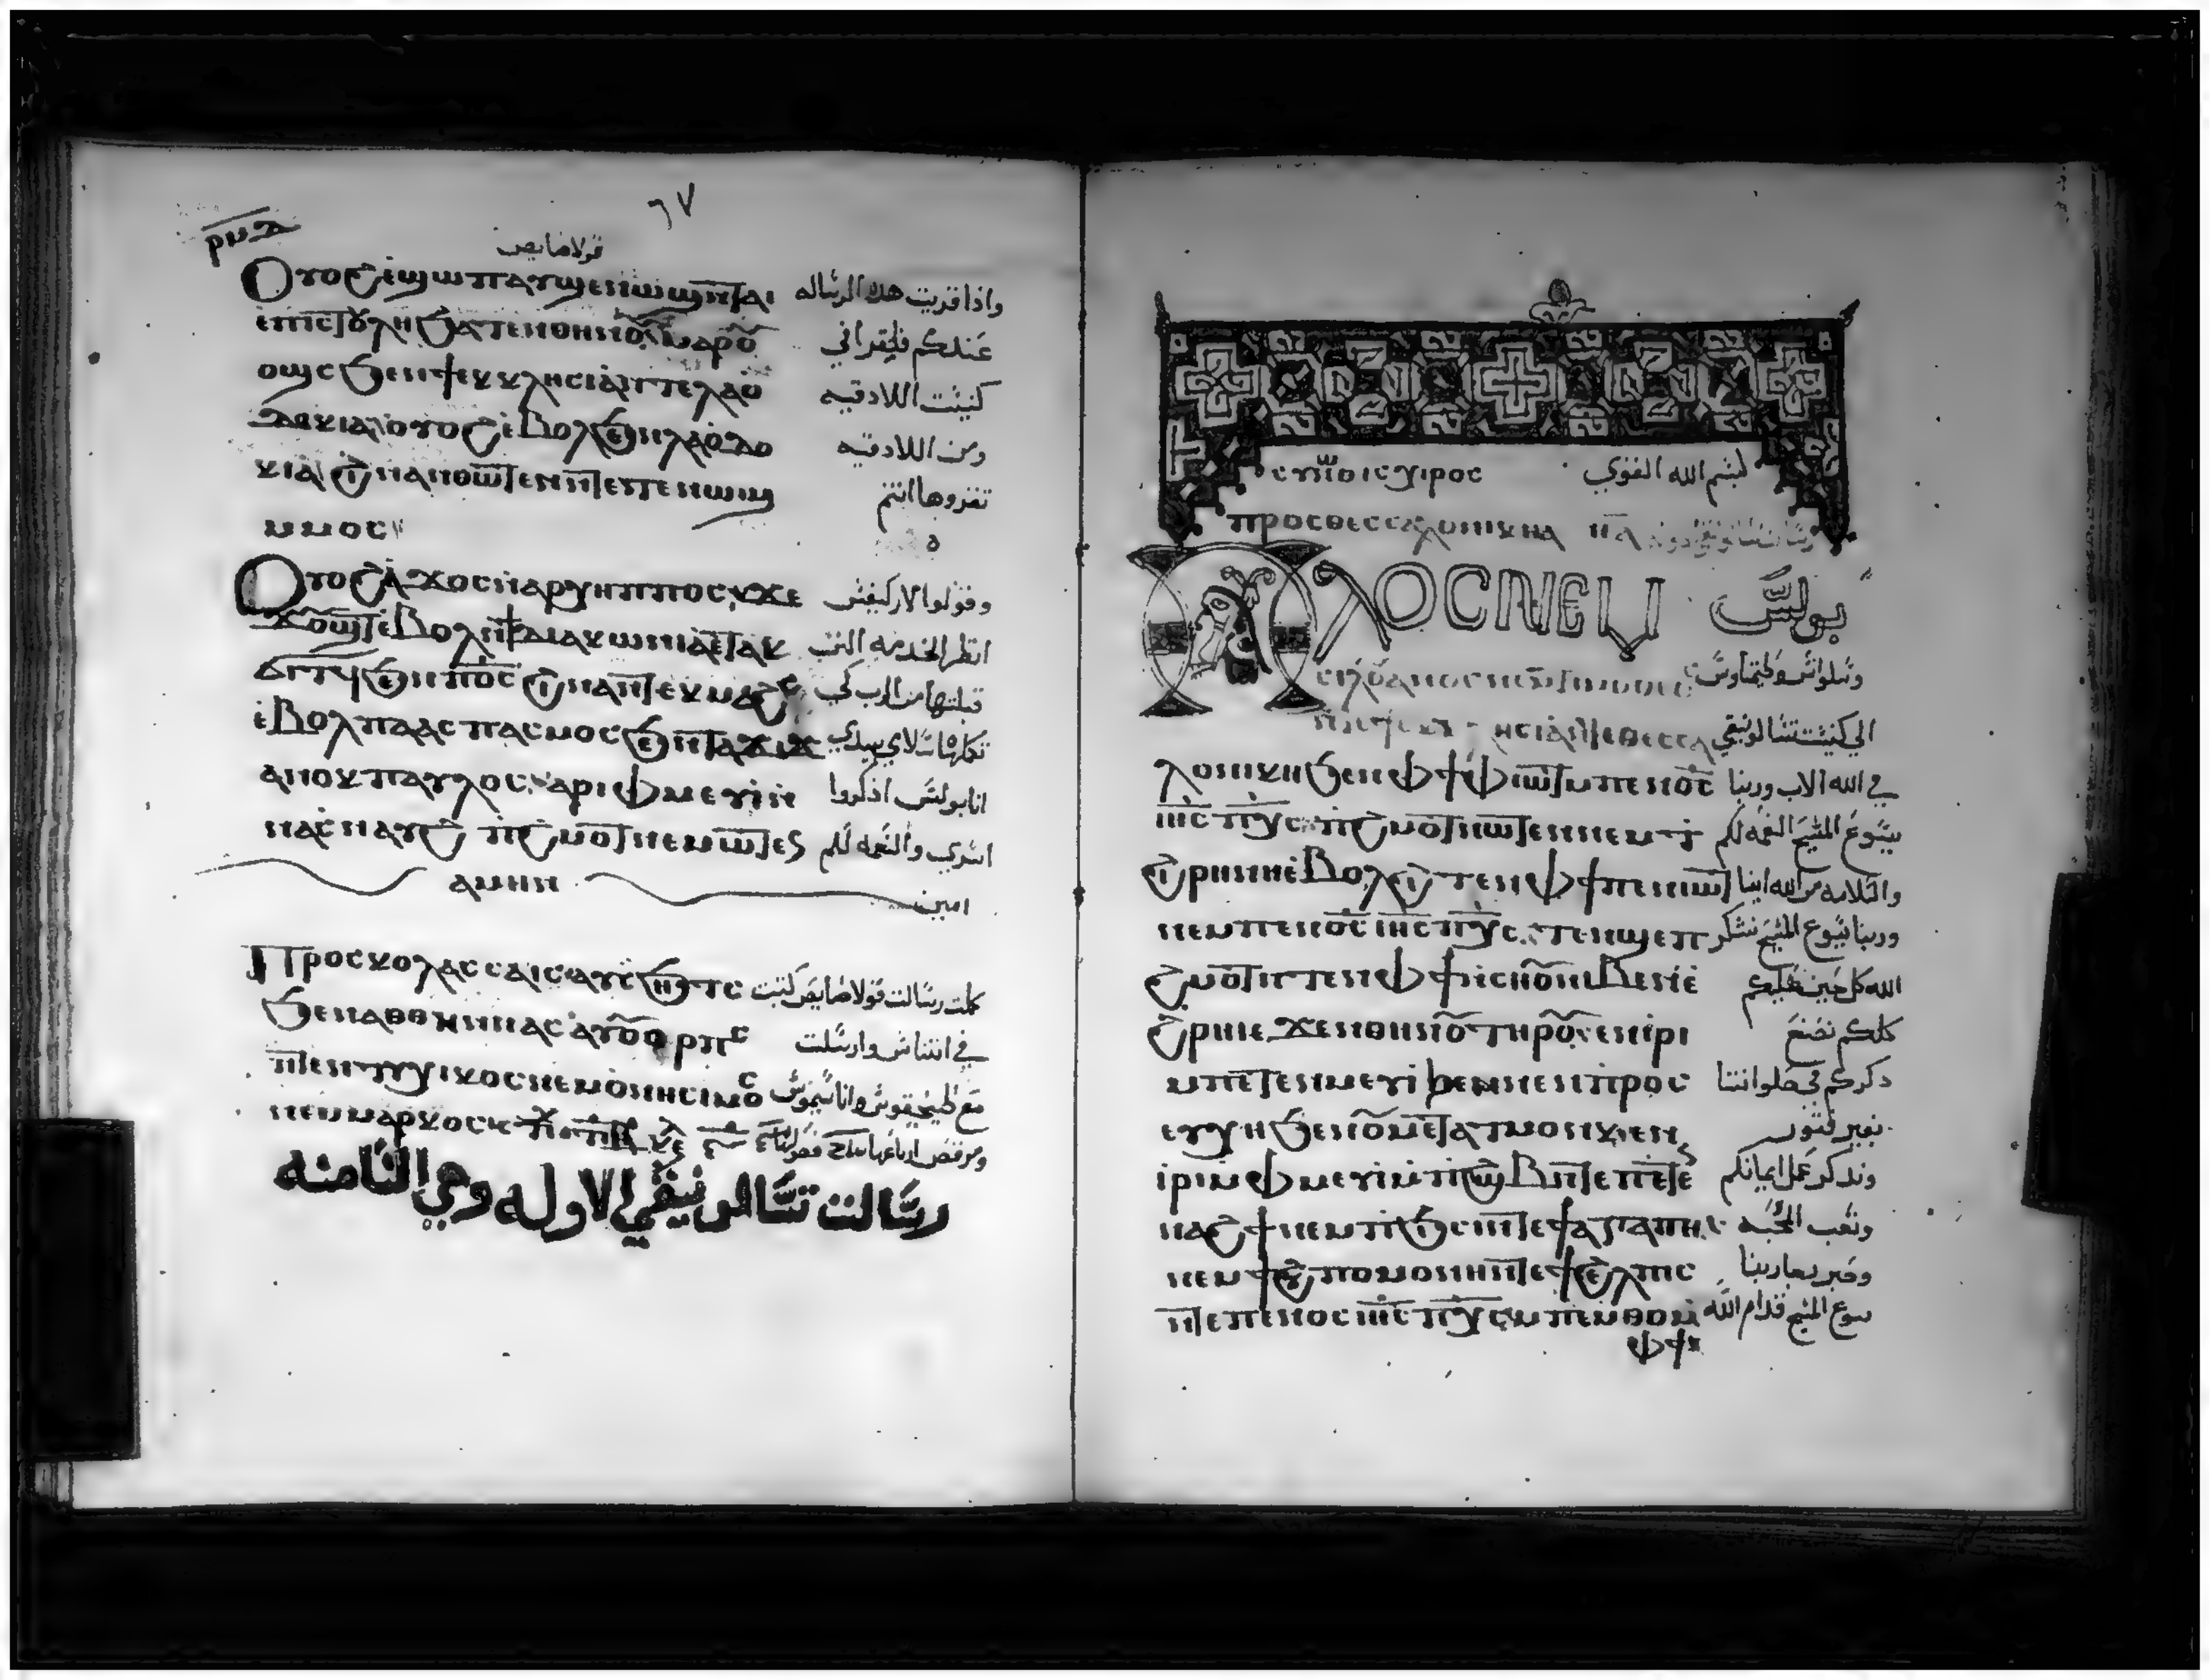 ⲣⲙⲇ
٦٧
قولاصايص
Ⲟⲩⲟϩ ⲉϣⲱⲡ ⲁⲩϣⲉⲛⲱϣ ⲛⲧⲁⲓ واذا قريت هذه الرساله
ⲉⲡⲓⲥⲧⲟⲗⲏ ϧⲁⲧⲉⲛ ⲑⲏⲛⲟⲩ ⲙⲁⲣⲟⲩ عندكم فليقراني
ⲟϣⲥ ϧⲉⲛ ϯⲉⲕⲕⲗⲏⲥⲓⲁ ⲛⲧⲉ ⲗⲁⲟ كنيست اللادقيه
ⲇⲓⲕⲓⲁ ⲟⲩⲟϩ ⲉⲃⲟⲗ ϧⲉⲛ ⲗⲁⲟⲇⲟ ومن اللادقيه
ⲕⲓⲁ ϩⲓⲛⲁ ⲛⲑⲱⲧⲉⲛ ⲛⲧⲉⲧⲉⲛⲱϣ تقروها انتم
ⲙⲙⲟⲥ
Ⲟⲩⲟϩ ⲁϫⲟⲥ ⲛⲁⲣⲭⲏⲡⲡⲟⲥ ϫⲉ وقولوا لارکیفس
ϫⲟⲩϣⲧ ⲉⲃⲟⲗ ⲛϯⲇⲓⲁⲕⲱⲛⲓⲁ ⲉⲧⲁⲕ انظر الخدمه التي
ϭⲓⲧⲥ ϧⲉⲛ ⲡⲟⲥ ϩⲓⲛⲁ ⲛⲧⲉⲕⲙⲁϩⲥ قبلتها من الرب كي
ⲉⲃⲟⲗ ⲡⲁⲁⲥⲡⲁⲥⲙⲟⲥ ϧⲉⲛ ⲧⲁϫⲓϫ تكملها سلاي بيدي
ⲁⲛⲟⲕ ⲡⲁⲩⲗⲟⲥ ⲁⲣⲓⲫⲙⲉⲩⲓ ⲛ انا بولس اذكروا
ⲛⲁⲥⲛⲁⲩϩ ⲡϩⲙⲟⲧ ⲛⲉⲙⲱⲧⲉⲛ اسري والنعمه لكم
ⲁⲙⲏⲛ امين
Ⲡⲣⲟⲥ ⲕⲟⲗⲁⲥⲥⲁⲓⲥ ⲁⲩⲥϧⲏⲧⲥ كملت رسالت قولاصايص كتبت
ϧⲉⲛ ⲁⲑⲑⲏⲛⲛⲁⲥ ⲁⲩⲟⲩⲟⲣⲡⲥ في اتناس وارسلت
ⲛⲧⲉⲛ ⲧⲩⲭⲓⲕⲟⲥ ⲛⲉⲙ ⲟⲛⲏⲥⲓⲙⲟⲥ مع طيخيقوس واناسيموس
ⲛⲉⲙ ⲙⲁⲣⲕⲟⲥ ومرقص
رسالت تسالونيقي الاوله وهي الثامنه
ⲥⲩⲛ ⲑⲱ ⲓⲥⲭⲓⲣⲟⲥ بسم الله القوي
ⲡⲣⲟⲥ ⲑⲉⲥⲥⲁⲗⲟⲛⲓⲕⲏⲁ ⲡⲁ
ⲠⲀⲨⲖⲞⲤ ⲚⲈⲘ بولس
ⲥⲓⲗⲟⲩⲁⲛⲟⲥ ⲛⲉⲙ ⲧⲓⲙⲟⲑⲉⲟⲥ وسلوانس وطيماتاوس
ⲛϯⲉⲕⲕⲗⲏⲥⲓⲁ ⲛⲧⲉ ⲑⲉⲥⲥⲁ الي كنيست تسالونيقي
ⲗⲟⲛⲓⲕⲏ ϧⲉⲛ ⲫϯ ⲫⲓⲱⲧ ⲙ ⲡⲉⲛⲟⲥ في الله الاب وربنا
ⲓⲏⲥ ⲡⲭⲥ ⲡϩⲙⲟⲧ ⲛⲱⲧⲉⲛ ⲛⲉⲙ ⲧ يسوع المسيح النعمه لكم
ϩⲓⲣⲏⲛⲏ ⲉⲃⲟⲗ ϩⲓⲧⲉⲛ ⲫϯ ⲡⲉⲛⲓⲱⲧ والسلامه من الله ابينا
ⲛⲉⲙ ⲡⲉⲛⲟⲥ ⲓⲏⲥ ⲡⲭⲥ ⲧⲉⲛϣⲉⲡ وربنا يسوع المسيح نشكر
ϩⲙⲟⲧ ⲛⲧⲉⲛ ⲫϯ ⲛⲥⲏⲟⲩ ⲛⲓⲃⲉⲛ ⲉ الله كل حين عليكم
ϩⲣⲏⲓ ⲉϫⲉⲛ ⲑⲏⲛⲟⲩ ⲧⲏⲣⲟⲩ ⲉⲛⲓⲣⲓ كلكم نصنع
ⲙⲡⲉⲧⲉⲛⲙⲉⲩⲓ ϧⲉⲛ ⲛⲉⲛⲡⲣⲟⲥ دكركم في صلواتنا
ⲉⲩⲭⲏ ϧⲉⲛ ⲟⲩⲙⲉⲧⲁⲧⲙⲟⲩⲛⲕ ⲉⲛ بغير فتور
ⲓⲣⲓ ⲙⲫⲙⲉⲩⲓ ⲙⲡϩⲱⲃ ⲛⲧⲉ ⲡⲉⲧⲉⲛ وندكر عمل ايمانكم
ⲛⲁϩϯ ⲛⲉⲙ ⲡϧⲓⲥⲓ ⲛⲧⲉ ϯⲁⲅⲁⲡⲏ وتعب المحبه
ⲛⲉⲙ ϯϩⲩⲡⲟⲙⲟⲛⲏ ⲛⲧⲉ ϯϩⲉⲗⲡⲓⲥ وصبر رجا ربنا
ⲛⲧⲉ ⲡⲉⲛⲟⲥ ⲓⲏⲥ ⲡⲭⲥ ⲙⲡⲉⲙⲑⲟ ⲙ يسوع المسيح قدام الله
ⲫϯ